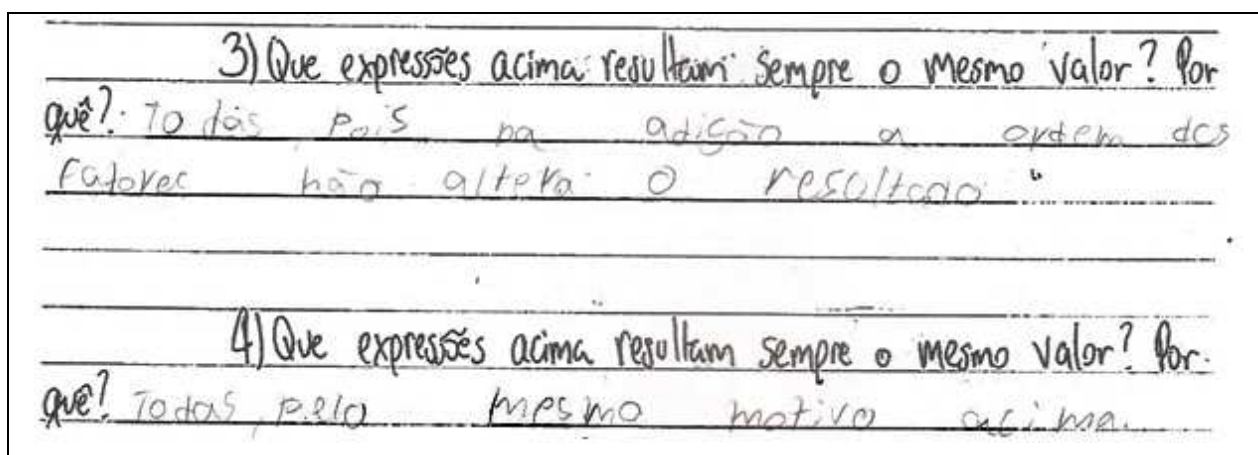 3) Que expressões acima resultam sempre o mesmo valor? Por
quê? Todas, pois na adição a ordem dos
fatores não altera o resultado.
4) Que expressões acima resultam sempre o mesmo valor? Por
quê? Todas, pelo mesmo motivo acima.